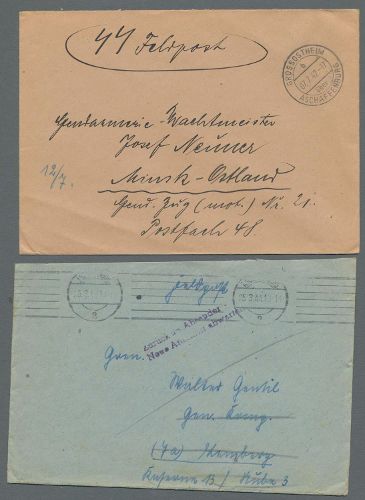 44 Feldpost
GROSSOSTHEIM
b
über
ASCHAFFENBURG
Gendarmerie-Wachtmeister
Josef Neuner
12/7.
Minsk-Ostland
Gend. Zug (mot.) Nr. 21.
Postfach 48
Feldpost
Zurück an Absender
Neue Anschrift abwarten
Gren.
Walter Gentil
Gen. Komp.
(7a) Hemberg
Kaserne B / Stube 3